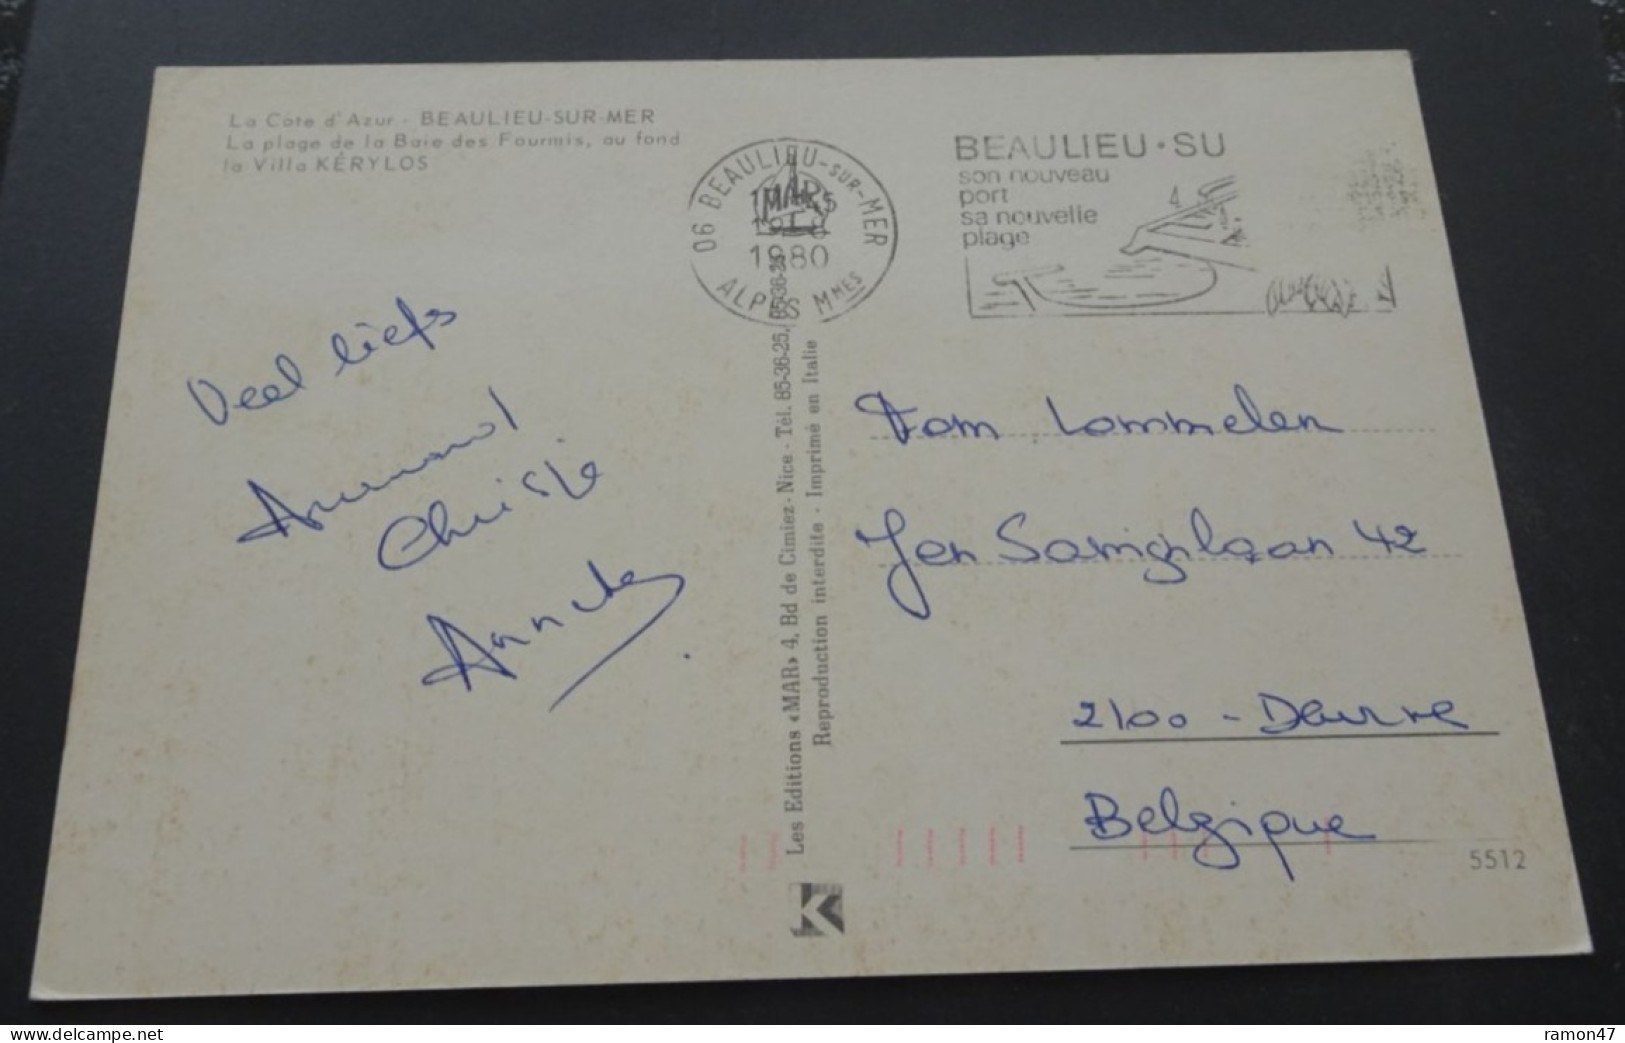 La Côte d'Azur - BEAULIEU-SUR-MER
La plage de la Baie des Fourmis, au fond
la Villa KÉRYLOS
06 BEAULIEU-SUR-MER
1980
ALPES Mmes
BEAULIEU • SU
son nouveau
port
sa nouvelle
plage
Veel liefs
Armand
Chrisje
Les Editions «MAR» 4, Bd de Cimiez - Nice - Tél. 85-36-25,
Reproduction interdite - Imprimé en Italie
Tom Lommelen
42
2100 - Deurne
Belgique
5512
K
delcampe.net
ramon47